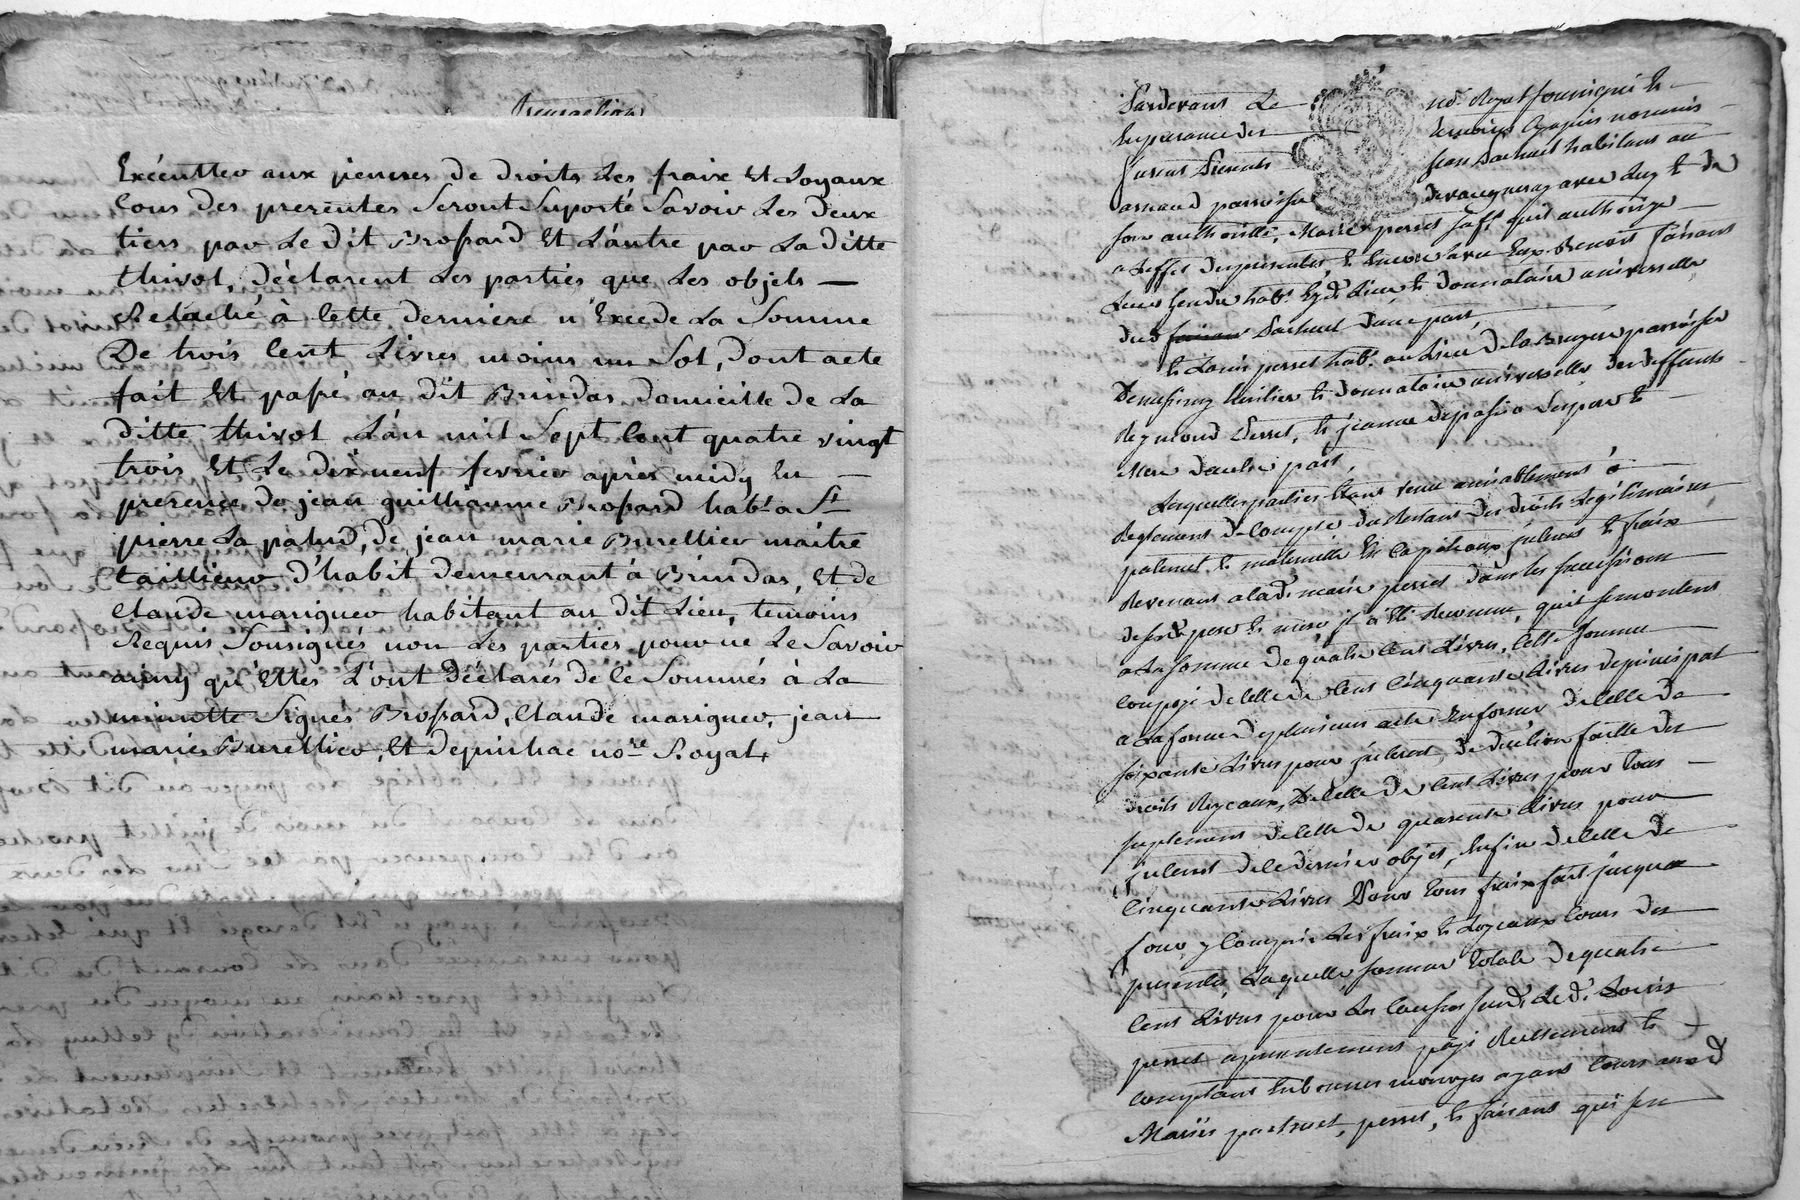 Transaction
Exécutter aux peines de droits Les fraix Et Loyaux
Cous des presentes Seront Suporté Savoir Les deux
tiers par Le dit Brossard Et L'autre par La ditte
thivol, déclarent Les parties que Les objets —
Relaché à Cette derniere n'Excede La Somme
De trois Cent Livres moins un Sol, dont acte
fait Et passé au dit Brindas domicille de La
ditte thivol L'an mil Sept Cent quatre vingt
trois Et Le dix neuf fevrier après midy En —
presence de jean guilliaume Brossard hab.t a St
pierre La palud, de jean marie Burellier maitre
taillieur d'habit demeurant à Brindas, Et de
Claude mariguer habitant au dit Lieu, temoins
Requis Sousignés non Les parties pour ne Le Savoir
ainsy qu'Elles L'ont déclarés de Ce Sommés à La
minutte Signés Brossard, Claude mariguer, jean
marie Burellier, Et depinhac no.re Royal.
Pardevant Le no.e Royal soussigné Et
En presence des temoins Cy apres nommés
furent Presents jean Pachut habitant au
arnaud parroisse de vaugneray avec Luy Et de
son authorité, Marie perret sa fe. quil authorize
a Leffet des presentes, Et Encore avec Eux Benoit faisant
Leur gendre hab.t Eyd. Lieu Et donnataire universelle
dud. Pachut d'une part,
Et Louis perret hab.t au Lieu de la Bruyere parroisse
heritier Et donnataire universelle des deffunts
Reymond Perret, Et jeanne Ses pere Et
Mere d'autre part,
Lesquelles parties Etant venu amiablement à
Reglement de Compte du Restant des droits Legitimaires
paternel Et maternelle En Capiteaux jnterets Et fraix
Revenant a lad. marie perret dans les successions
de ses pere Et mere il a Eté Reconnu, quil se montent
a La somme de quatre Cent Livres, Cette somme
Composé de Celle de Cent Cinquante Livres de principal
a La forme de plusieurs acte En forme, de Celle de
soixante Livres pour jnterets, deduction faitte des
droits Royeaux, de Celle de Cent Livres pour tous
suplement de Celle de quarente Livres pour
jnterets de Ce dernier objet, Enfin de Celle de
Cinquante Livres Pour tous fraix fait jusqu'a
jour, y Compris Les fraix Et Loyeaux Cous des
presentes, Laquelle somme totale de quatre
Cent Livres pour Les Causes susd. Led. Louis
perret a presentement payé Reellement Et
Comptant En bonnes monoyes ayant Cours auxd.
Mariés pachut, perret, Et faisant qui sen